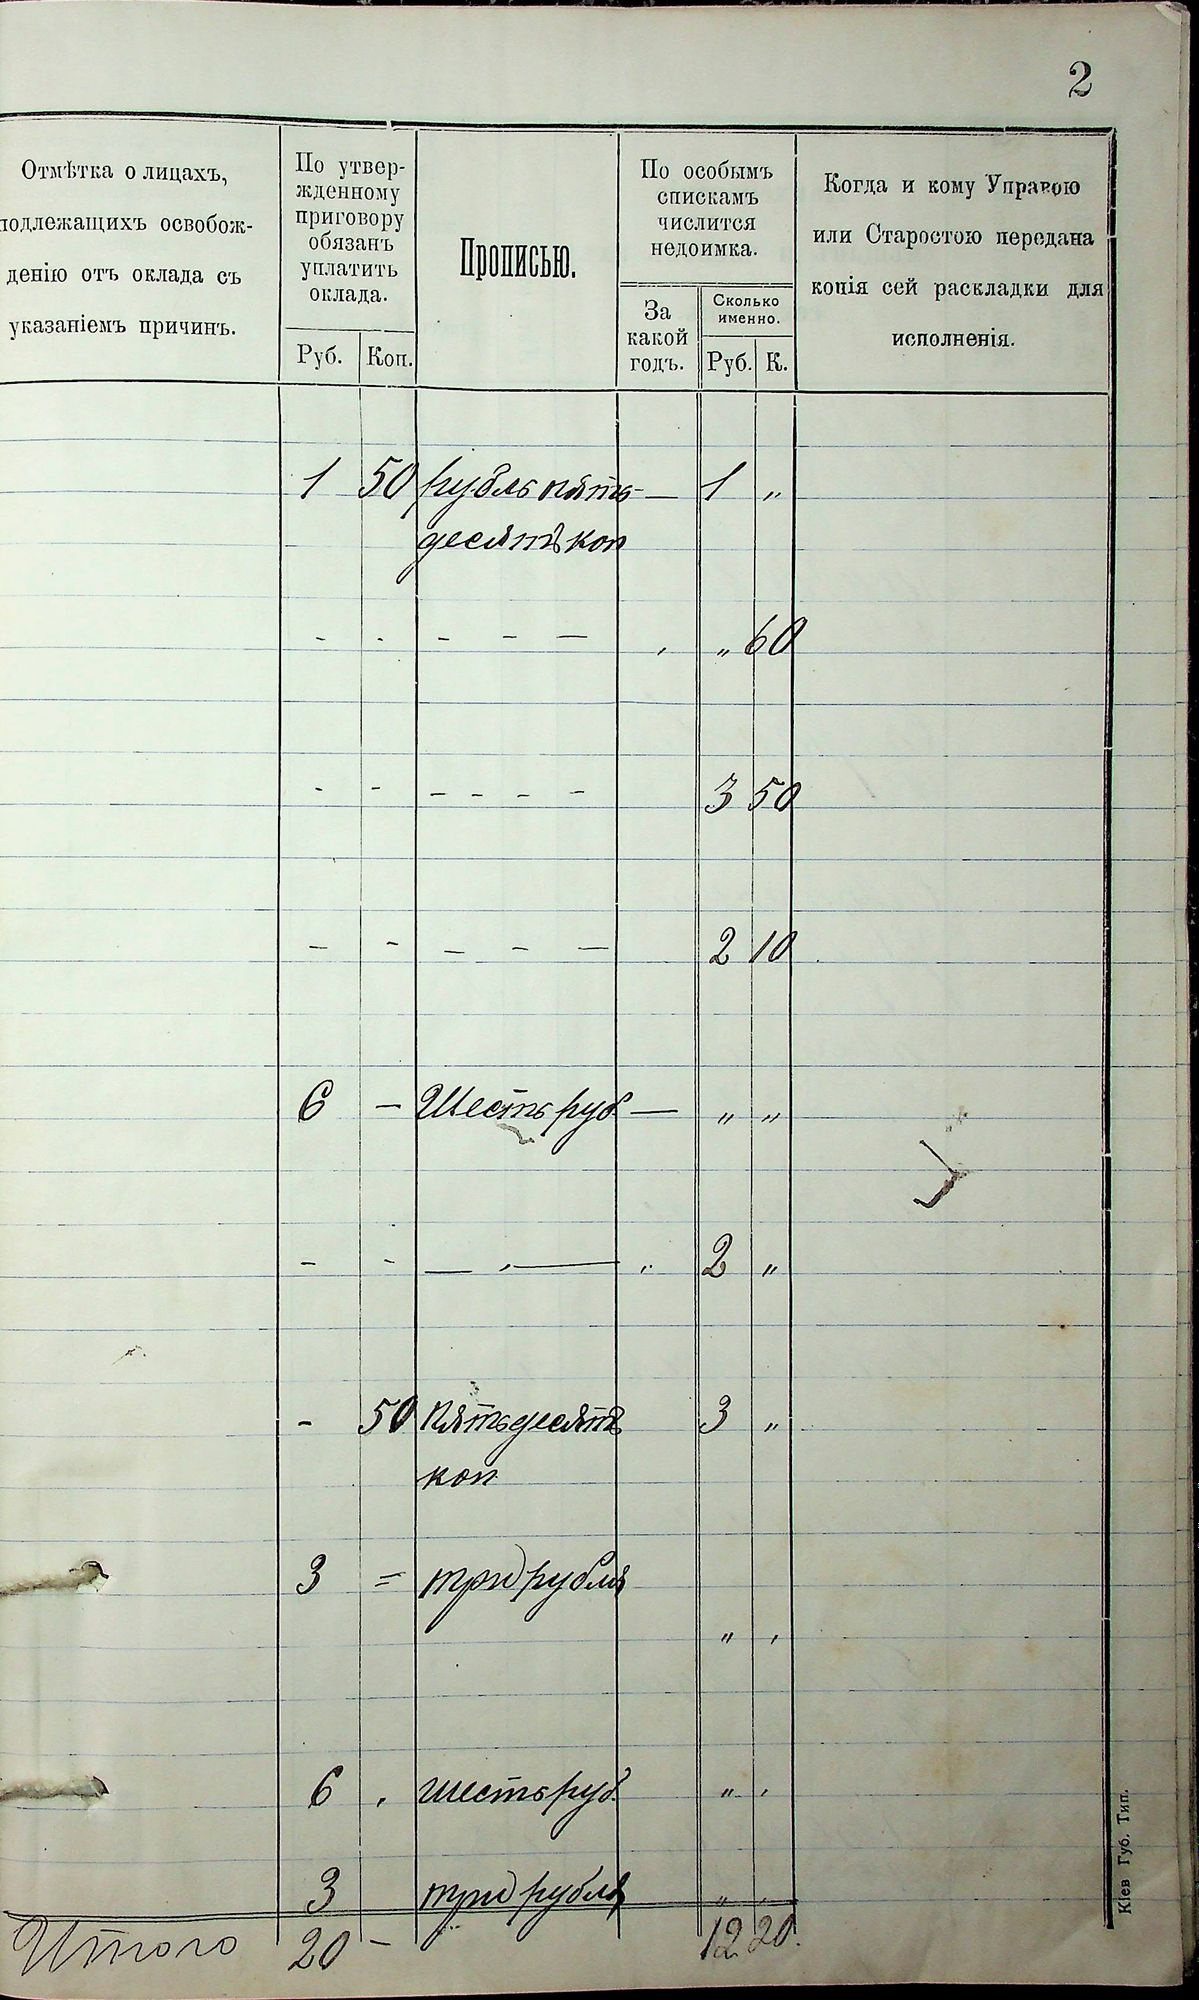 2
Отмѣтка о лицахъ,
подлежащихъ освобож-
денію отъ оклада съ
указаніемъ причинъ.
По утвер-
жденному
приговору
обязанъ
уплатить
оклада.
Руб. Коп.
Прописью.
По особымъ
спискамъ
числится
недоимка.
За
какой
годъ.
Сколько
именно.
Руб. К.
Когда и кому Управою
или Старостою передана
копія сей раскладки для
исполненія.
1 50 рубль пять- — 1 „
десятъ коп
- - - - — , „ 60
- - - - - - 3 50
- - - - — 2 10
6 — Шесть руб — „ „
- - — , — „ 2 „
- 50 Пятьдесятъ 3 „
коп
3 = три рубля
„ ,
6 , шесть руб. „ ,
3 три рубля „ ,
Итого 20 — 12 20.
Кіев Губ. Тип.